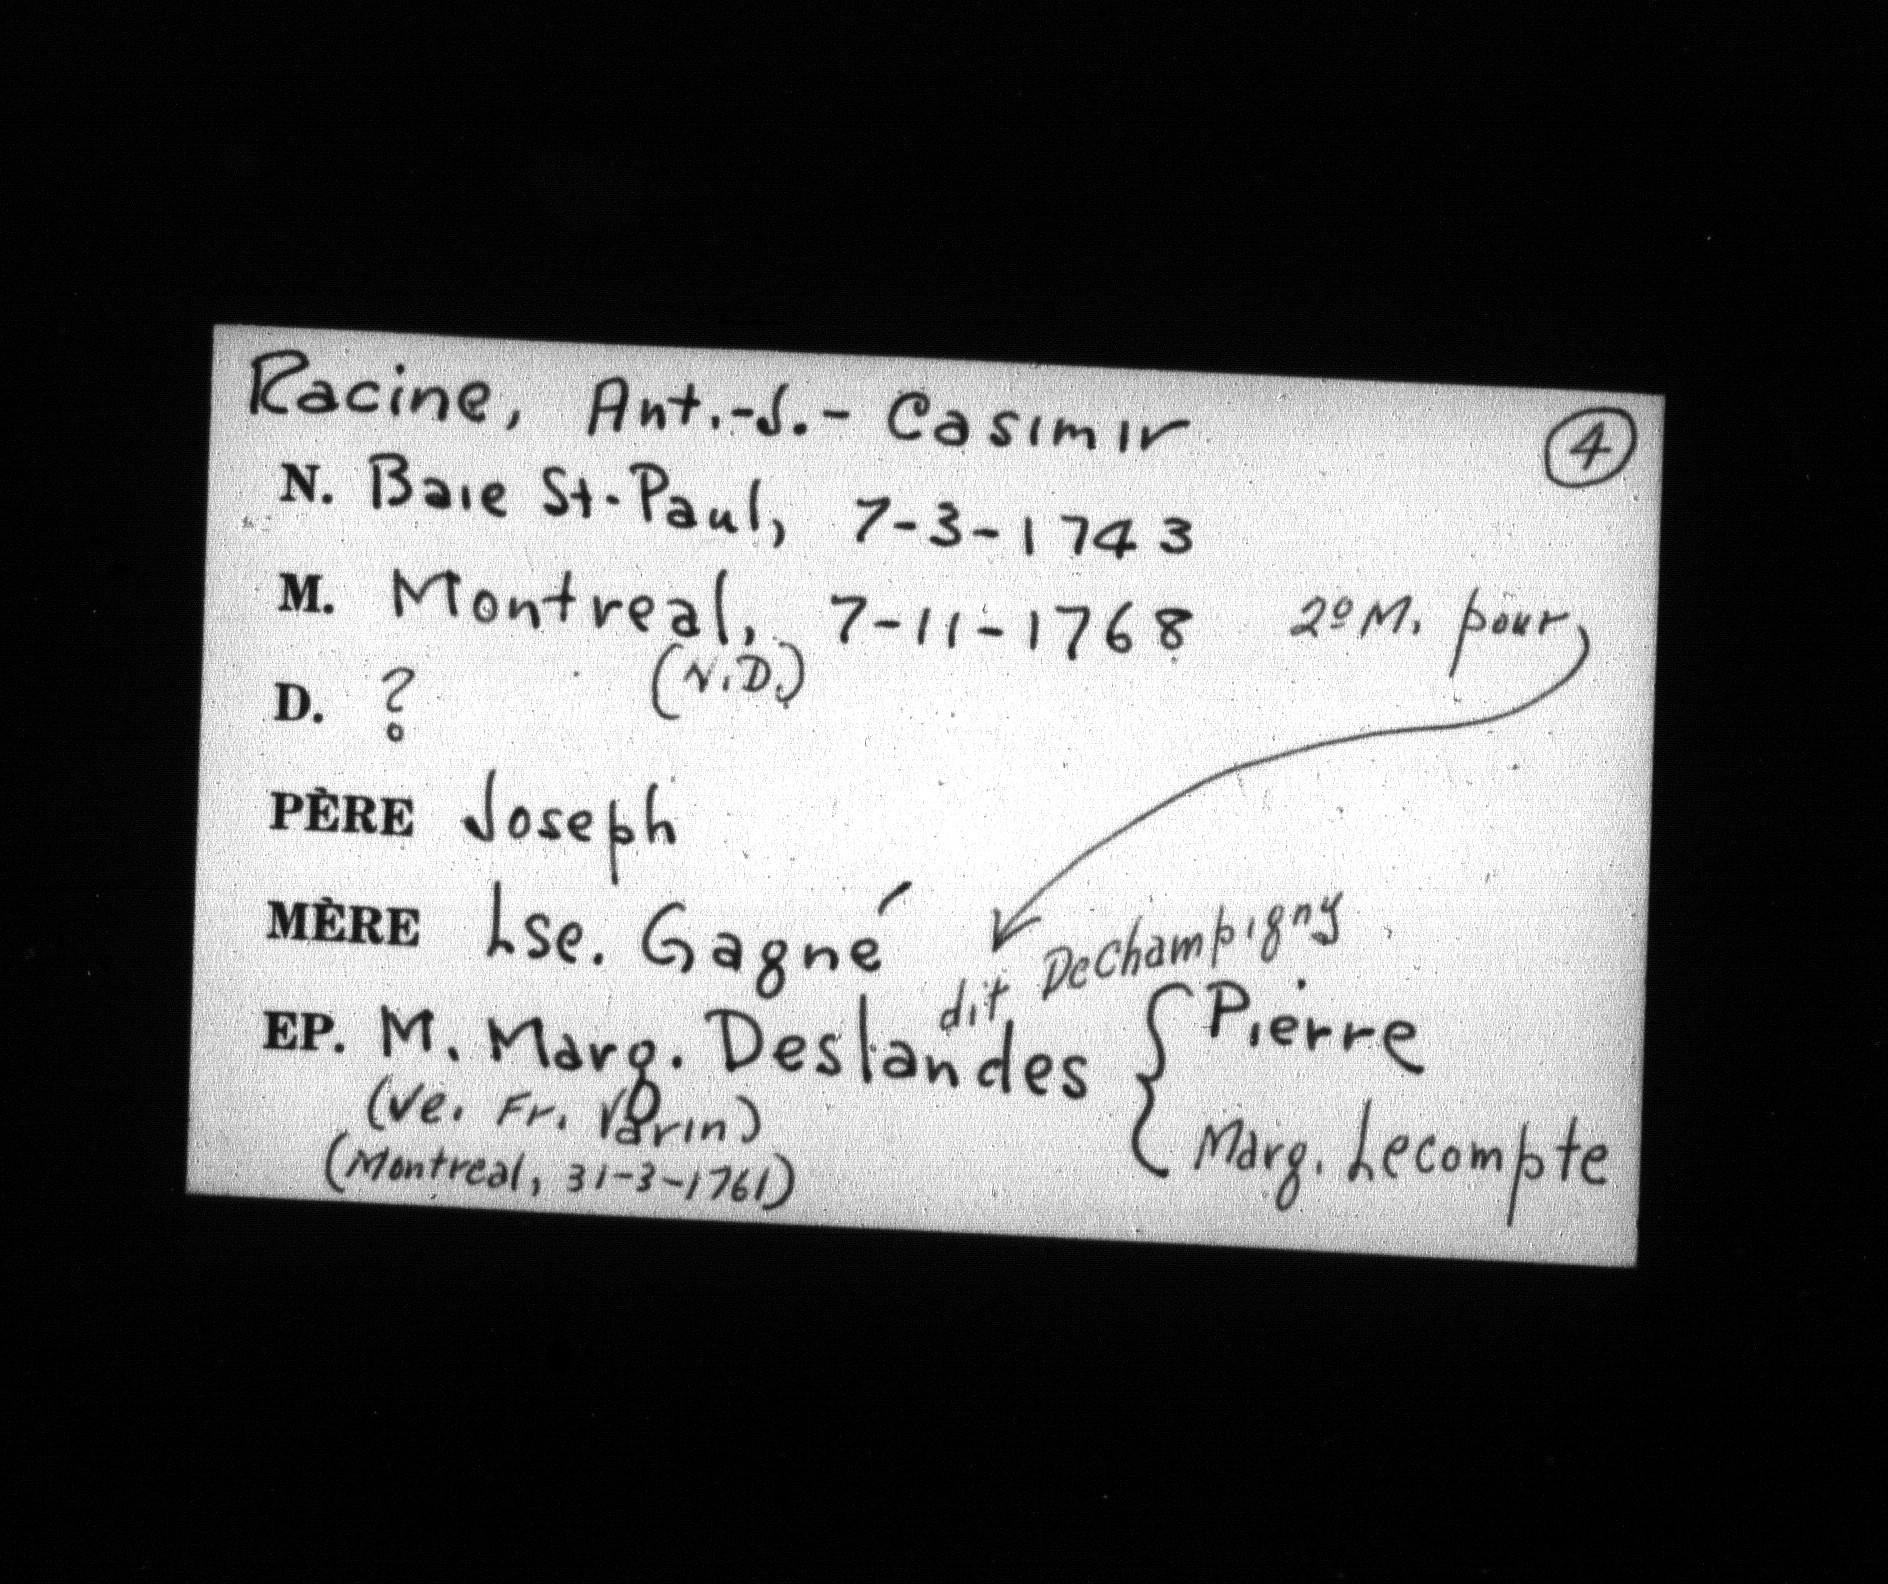 Racine, Ant.-J.- Casimir ④
N. Baie St-Paul, 7-3-1743
M. Montreal, 7-11-1768 2º M. pour
(N.D.)
D. ?
PÈRE Joseph
MÈRE Lse. Gagné
dit DeChampigny
EP. M. Marg. Deslandes { Pierre
(Ve. Fr. Varin)
Marg. Lecompte
(Montreal, 31-3-1761)